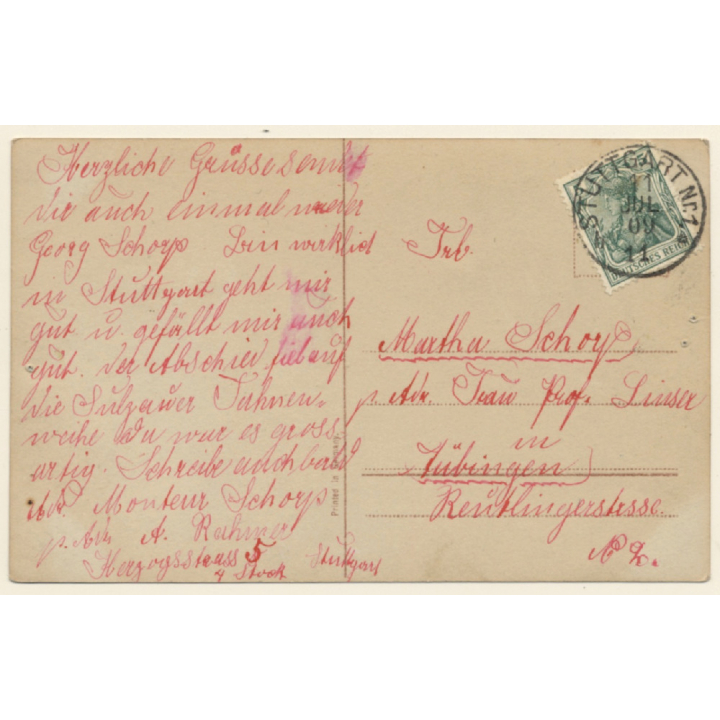 Herzliche Grüsse sendet
dir auch einmal wieder
Georg Schorp bin wirklich
in Stuttgart geht mir
gut u. gefällt mir auch
gut. der Abschied fiel auf
die Sulzauer Fahnen-
weihe du war es gross-
artig. Schreibe auch bald
Adr. Monteur Schorp
p. Adr. A.
Herzogsstrasse 5
4 Stock Stuttgart
Printed in
STUTTGART Nr. 1
11
JUL
09
DEUTSCHES REICH
Frl.
Martha Schorp
p. Adr. Frau Prof. Linser
in
Tübingen
Reutlingerstrasse.
No 2.